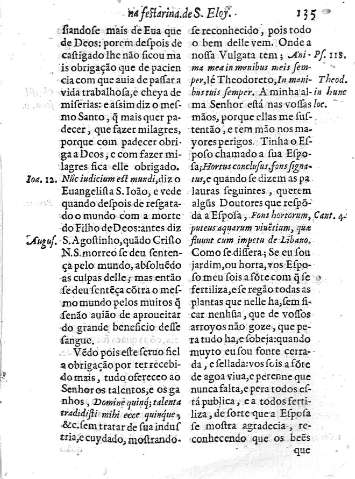 na festa rina. de S. Eloy. 135
siandose mais de Eua que
de Deos; porem despois de
castigado lhe não ficou ma
is obrigação que de pacien
cia com que auia de passar a
vida trabalhosa, e cheya de
miserias: e assim diz o mes
mo Santo, q̃ mais quer pa-
decer, que fazer milagres,
porque com padecer obri-
ga a Deos, e com fazer mi-
lagres fica elle obrigado.
Ioa. 12. Nũc iudicium est mundi, diz o
Euangelista S. Ioão, e vede
quando despois de resgata-
do o mundo com a morte
do Filho de Deos: antes diz
August. S. Agostinho, quãdo Cristo
N. S. morreo se deu senten-
ça pelo mundo, absoluẽdo
as culpas delle; mas então
se deu sentẽça cõtra o mes-
mo mundo pelos muitos q̃
se não auião de aproueitar
do grande beneficio desse
sangue.
Vẽdo pois este seruo fiel
a obrigação por ter recebi-
do mais, tudo ofereceo ao
Senhor os talentos, e os ga
nhos, Domine quinq; talenta
tradidisti mihi ecce quinque,
&c. sem tratar de sua indus
tria, e cuydado, mostrando-
se reconhecido, pois todo
o bem delle vem. Onde a
nossa Vulgata tem; Ani- Ps. 118.
ma mea in manibus meis sem-
per, lé Theodoreto, In mani- Theod.
bus tuis semper. A minha al- in hunc
ma Senhor está nas vossas loc.
mãos, porque ellas me sus-
tentão, e tem mão nos ma-
yores perigos. Tinha o Es-
poso chamado a sua Espo-
sa; Hortus conclusus, fons signa-
tus, e quando se dizem as pa
lauras seguintes, querem
algũs Doutores que respõ-
da a Esposa, Fons hortorum, Cant. 4.
puteus aquarum viuẽtium, quæ
fluunt cum impetu de Libano.
Como se dissera; Se eu sou
jardim, ou horta, vos Espo-
so meu sois a fõte com q̃ se
fertiliza, e se regão todas as
plantas que nelle ha, sem fi-
car nenhũa, que de vossos
arroyos não goze, que pe-
ra tudo ha, e sobeja: quando
muyto eu sou fonte cerra-
da, e sellada: vos sois a fõte
de agoa viua, e perenne que
nunca falta, e pera todos es-
tá publica, e a todos ferti-
liza, de sorte que a Esposa
se mostra agradecida, re-
conhecendo que os beẽs
que